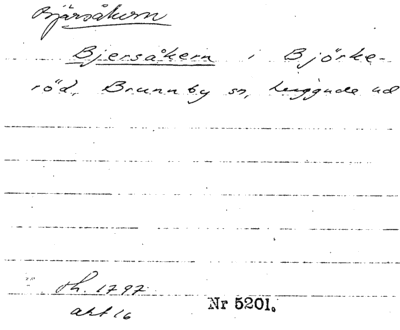 Bjärsåkern
Bjersåkern i Björke-
röd, Brunnby sn, Luggude hd
sk. 1797
akt 16
Nr 5201.